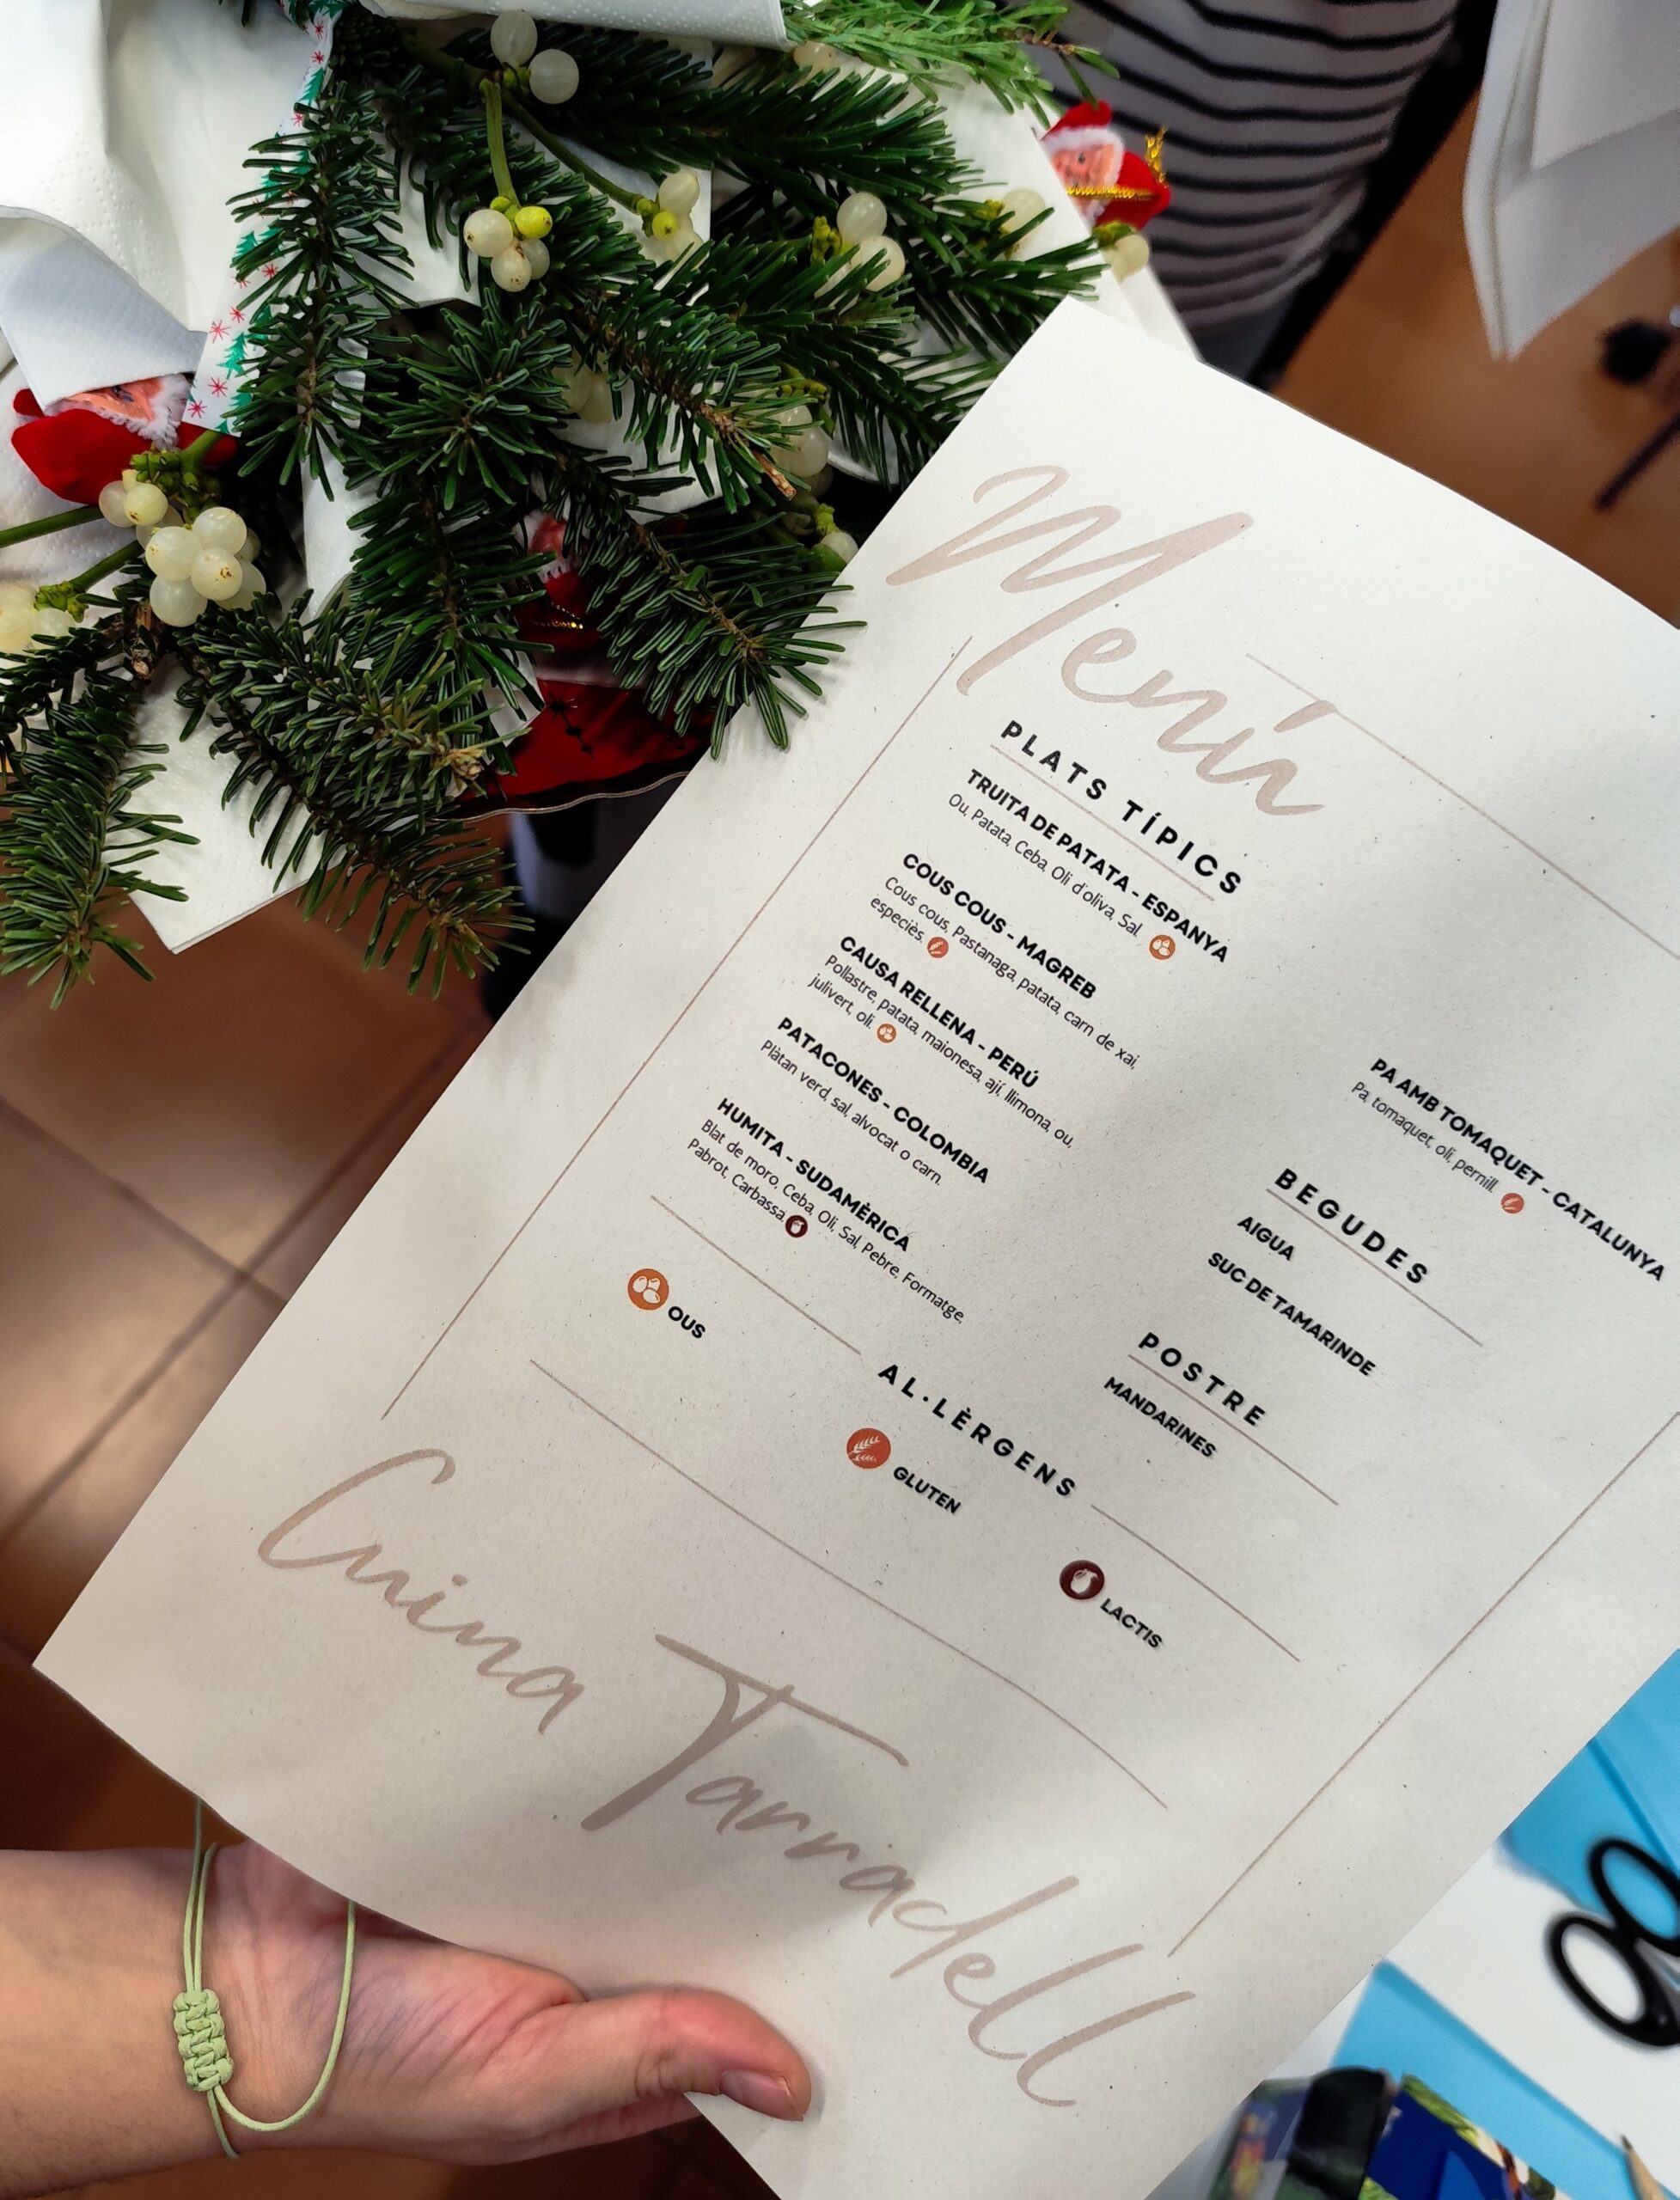 Menú
PLATS TÍPICS
TRUITA DE PATATA - ESPANYA
Ou, Patata, Ceba, Oli d'oliva, Sal.
COUS COUS - MAGREB
Cous cous, Pastanaga, patata, carn de xai,
especiès.
CAUSA RELLENA - PERÚ
Pollastre, patata, maionesa, ají, llimona, ou,
julivert, oli.
PATACONES - COLOMBIA
Plàtan verd, sal, alvocat o carn.
HUMITA - SUDAMÈRICA
Blat de moro, Ceba, Oli, Sal, Pebre, Formatge,
Pabrot, Carbassa.
PA AMB TOMAQUET - CATALUNYA
Pa, tomaquet, oli, pernill.
BEGUDES
AIGUA
SUC DE TAMARINDE
POSTRE
MANDARINES
AL·LÈRGENS
OUS
GLUTEN
LACTIS
Cuina Tarradell